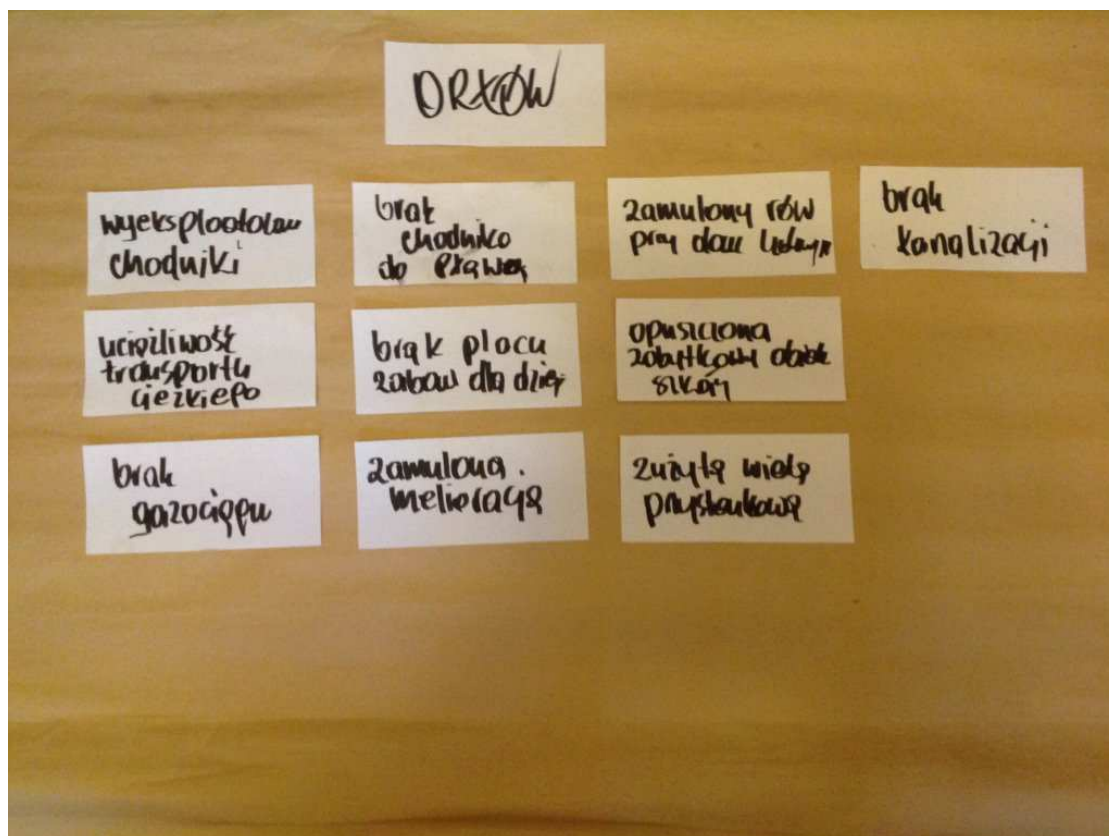 ORŁÓW
wyeksploatowan
chodniki
brak
chodnika
do
zamulony rów
przy dom ludowym
brak
kanalizacji
uciążliwość
transportu
ciężkiego
brak placu
zabaw dla dzieci
opuszczona
zabytkowy obiekt
szkoły
brak
gazociągu
zamulona
melioracja
zużyta wieża